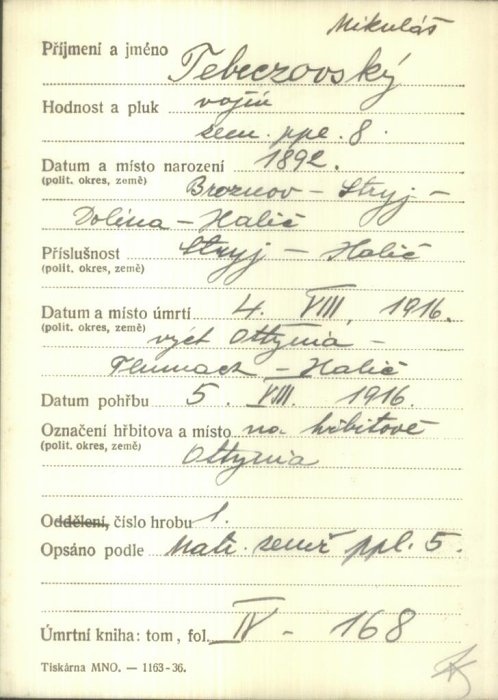 Mikuláš
Příjmení a jméno Tebeczovský
Hodnost a pluk vojín
zem. ppl. 8.
Datum a místo narození 1892.
(polit. okres, země) Broznov – Stryj –
Dolina – Halič
Příslušnost Stryj – Halič
(polit. okres, země)
Datum a místo úmrtí 4. VIII. 1916.
(polit. okres, země) výšt Ottynia –
Tlumacz – Halič
Datum pohřbu 5. VIII. 1916.
Označení hřbitova a místo na hřbitově
(polit. okres, země) Ottynia
Oddělení, číslo hrobu 1.
Opsáno podle Matr. zeměř ppl. 5.
Úmrtní kniha: tom, fol. IV – 168
Tiskárna MNO. — 1163-36.